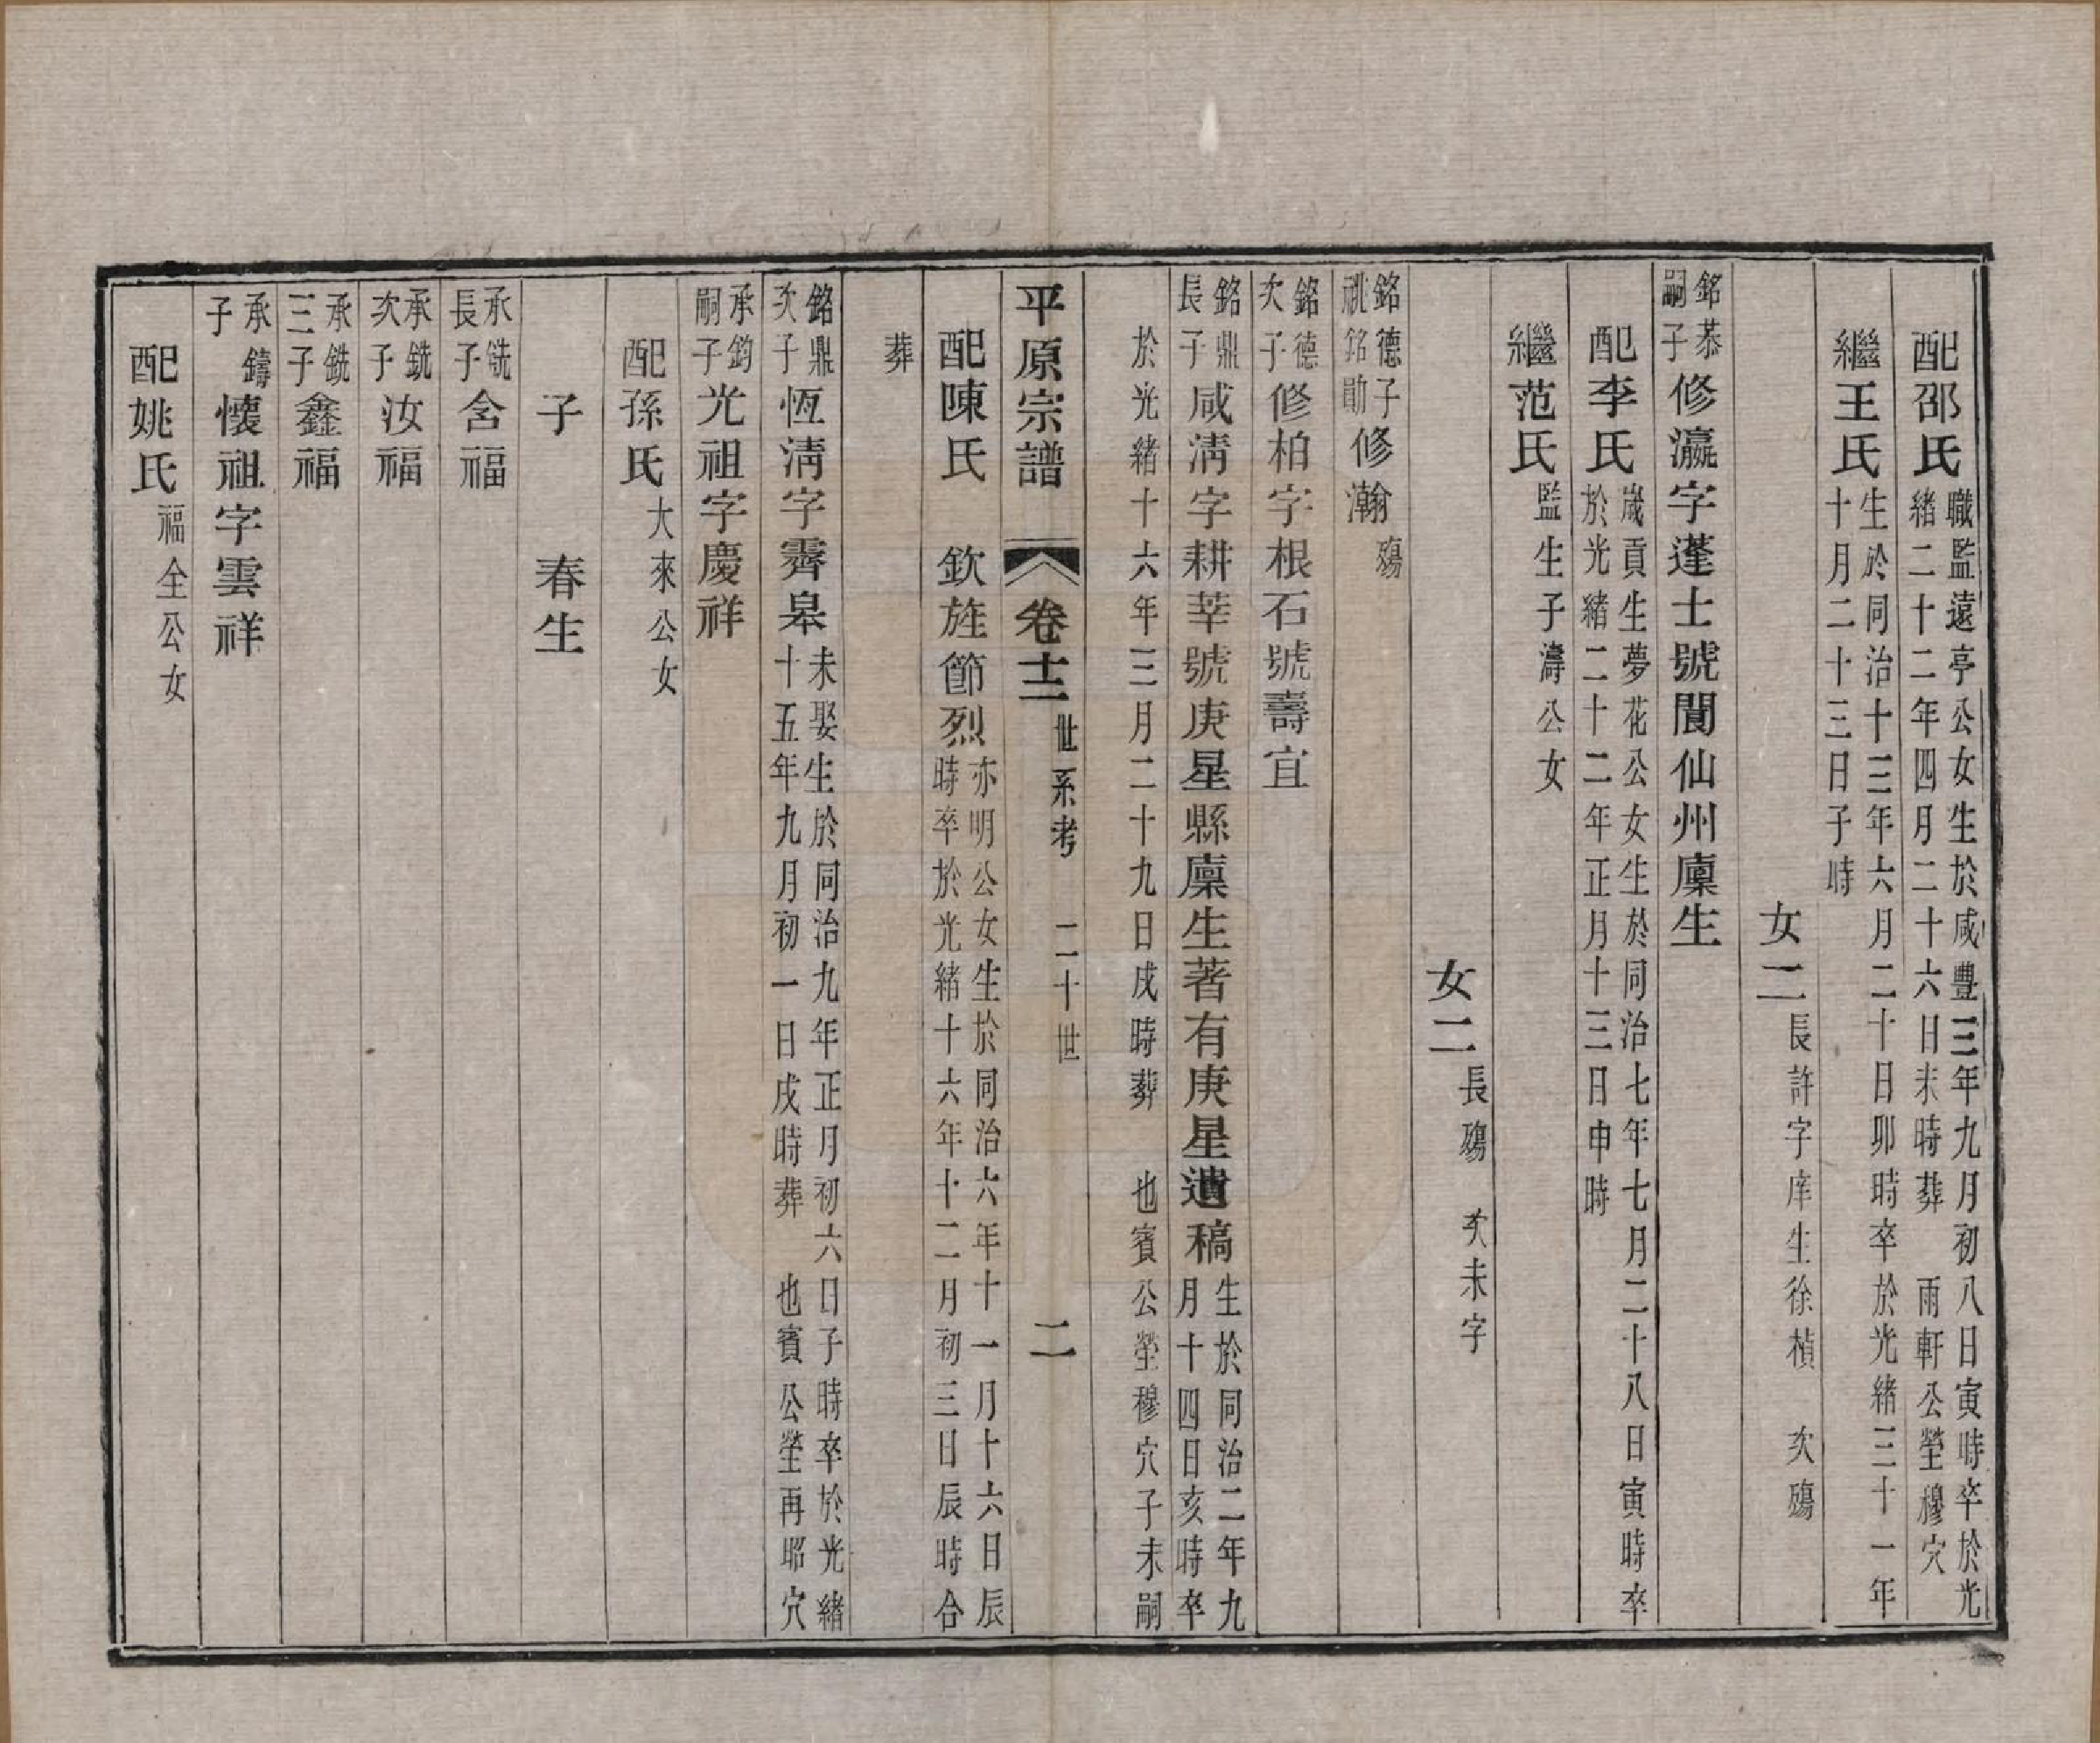 配邵氏職監遠亭公女生於咸豐三年九月初八日寅時卒於光
緒二十二年四月二十六日未時葬　雨軒公塋穆穴
繼王氏生於同治十三年六月二十日卯時卒於光緒三十一年
十月二十三日子時
女二長許字庠生徐楨　次殤
銘恭嗣子修瀛字蓬士號閬仙州廩生
配李氏歲貢生夢花公女生於同治七年七月二十八日寅時卒
於光緒二十二年正月十三日申時
繼范氏監生子濤公女
女二長殤　次未字
銘德子祧銘勛修瀚殤
銘德次子修柏字根石號壽宜
銘鼎長子咸淸字耕莘號庚星縣廩生著有庚星遺稿生於同治二年九
月十四日亥時卒
於光緒十六年三月二十九日戌時葬　也賓公塋穆穴子未嗣
平原宗譜　卷十二世系考　二十世　二
配陳氏　欽旌節烈亦明公女生於同治六年十一月十六日辰
時卒於光緒十六年十二月初三日辰時合
葬
銘鼎次子恆淸字霽皋未娶生於同治九年正月初六日子時卒於光緒
十五年九月初一日戌時葬　也賓公塋再昭穴
承鈞嗣子光祖字慶祥
配孫氏大來公女
子　春生
承銑長子含福
承銑次子汝福
承銑三子鑫福
承鑄子懷祖字雲祥
配姚氏福全公女